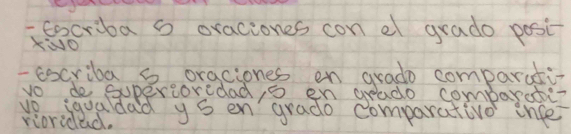 - Escriba 5 oraciones con el grado posi-
tivo
- escriba 5 oraciones en grado comparati-
vo de superioridad, 5 en grado comparati-
vo igualdad y 5 en grado comparativo infe-
rioridad.